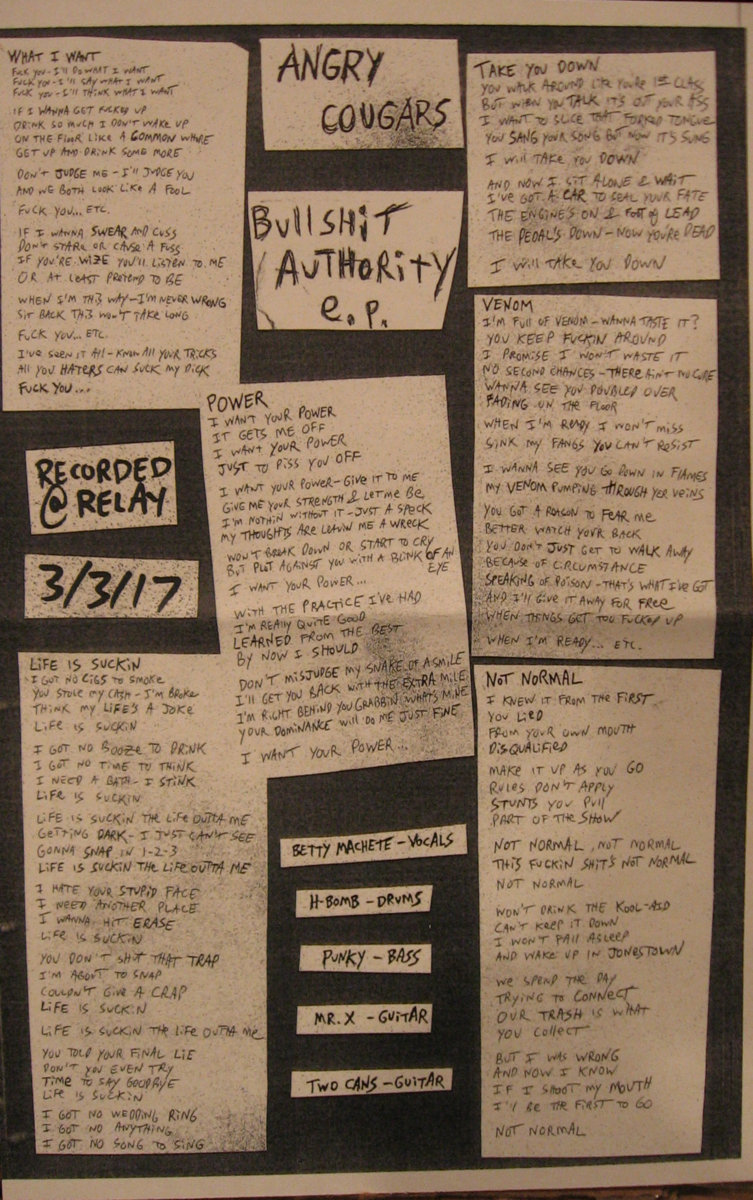 WHAT I WANT
FUCK YOU-I'LL DO WHAT I WANT
FUCK YOU-I'LL SAY WHAT I WANT
FUCK YOU-I'LL THINK WHAT I WANT
IF I WANNA GET FUCKED UP
DRINK SO MUCH I DON'T WAKE UP
ON THE FLOOR LIKE A COMMON WHORE
GET UP AND DRINK SOME MORE
DON'T JUDGE ME - I'LL JUDGE YOU
AND WE BOTH LOOK LIKE A FOOL
FUCK YOU... ETC.
IF I WANNA SWEAR AND CUSS
DON'T STARE OR CAUSE A FUSS
IF YOU'RE WIZE YOU'LL LISTEN TO ME
OR AT LEAST PRETEND TO BE
WHEN I'M THIS WAY-I'M NEVER WRONG
SIT BACK THIS WON'T TAKE LONG
FUCK YOU... ETC.
I'VE SEEN IT ALL-KNOW ALL YOUR TRICKS
ALL YOU HATERS CAN SUCK MY DICK
FUCK YOU...
ANGRY
COUGARS
BULLSHIT
AUTHORITY
e.p.
RECORDED
@ RELAY
3/3/17
POWER
I WANT YOUR POWER
IT GETS ME OFF
I WANT YOUR POWER
JUST TO PISS YOU OFF
I WANT YOUR POWER-GIVE IT TO ME
GIVE ME YOUR STRENGTH & LET ME BE
I'M NOTHIN WITHOUT IT-JUST A SPECK
MY THOUGHTS ARE LEAVIN ME A WRECK
WON'T BREAK DOWN OR START TO CRY
BUT PLOT AGAINST YOU WITH A BLINK OF AN
EYE
I WANT YOUR POWER...
WITH THE PRACTICE I'VE HAD
I'M REALLY QUITE GOOD
LEARNED FROM THE BEST
BY NOW I SHOULD
DON'T MISJUDGE MY SNAKE OF A SMILE
I'LL GET YOU BACK WITH THE EXTRA MILE
I'M RIGHT BEHIND YOU GRABBIN WHAT'S MINE
YOUR DOMINANCE WILL DO ME JUST FINE
I WANT YOUR POWER...
LIFE IS SUCKIN
I GOT NO CIGS TO SMOKE
YOU STOLE MY CASH-I'M BROKE
THINK MY LIFE'S A JOKE
LIFE IS SUCKIN
I GOT NO BOOZE TO DRINK
I GOT NO TIME TO THINK
I NEED A BATH-I STINK
LIFE IS SUCKIN
LIFE IS SUCKIN THE LIFE OUTTA ME
GETTING DARK-I JUST CAN'T SEE
GONNA SNAP IN 1-2-3
LIFE IS SUCKIN THE LIFE OUTTA ME
I HATE YOUR STUPID FACE
I NEED ANOTHER PLACE
I WANNA HIT ERASE
LIFE IS SUCKIN
YOU DON'T SHUT THAT TRAP
I'M ABOUT TO SNAP
COULDN'T GIVE A CRAP
LIFE IS SUCKIN
LIFE IS SUCKIN THE LIFE OUTTA ME
YOU TOLD YOUR FINAL LIE
DON'T YOU EVEN TRY
TIME TO SAY GOODBYE
LIFE IS SUCKIN
I GOT NO WEDDING RING
I GOT NO ANYTHING
I GOT NO SONG TO SING
BETTY MACHETE-VOCALS
H-BOMB-DRUMS
PUNKY-BASS
MR. X-GUITAR
TWO CANS-GUITAR
TAKE YOU DOWN
YOU WALK AROUND LIKE YOU'RE 1ST CLASS
BUT WHEN YOU TALK IT'S OUT YOUR ASS
I WANT TO SLICE THAT FORKED TONGUE
YOU SANG YOUR SONG BUT NOW IT'S SUNG
I WILL TAKE YOU DOWN
AND NOW I SIT ALONE & WAIT
I'VE GOT A CAR TO SEAL YOUR FATE
THE ENGINE'S ON & FOOT OF LEAD
THE PEDAL'S DOWN-NOW YOU'RE DEAD
I WILL TAKE YOU DOWN
VENOM
I'M FULL OF VENOM-WANNA TASTE IT?
YOU KEEP FUCKIN AROUND
I PROMISE I WON'T WASTE IT
NO SECOND CHANCES-THERE AINT NO CURE
WANNA SEE YOU DOUBLED OVER
FADING ON THE FLOOR
WHEN I'M READY I WON'T MISS
SINK MY FANGS YOU CAN'T RESIST
I WANNA SEE YOU GO DOWN IN FLAMES
MY VENOM PUMPING THROUGH YER VEINS
YOU GOT A REASON TO FEAR ME
BETTER WATCH YOUR BACK
YOU DON'T JUST GET TO WALK AWAY
BECAUSE OF CIRCUMSTANCE
SPEAKING OF POISON-THAT'S WHAT I'VE GOT
AND I'LL GIVE IT AWAY FOR FREE
WHEN THINGS GET TOO FUCKED UP
WHEN I'M READY... ETC.
NOT NORMAL
I KNEW IT FROM THE FIRST
YOU LIED
FROM YOUR OWN MOUTH
DISQUALIFIED
MAKE IT UP AS YOU GO
RULES DON'T APPLY
STUNTS YOU PULL
PART OF THE SHOW
NOT NORMAL, NOT NORMAL
THIS FUCKIN SHIT'S NOT NORMAL
NOT NORMAL
WON'T DRINK THE KOOL-AID
CAN'T KEEP IT DOWN
I WON'T FALL ASLEEP
AND WAKE UP IN JONESTOWN
WE SPEND THE DAY
TRYING TO CONNECT
OUR TRASH IS WHAT
YOU COLLECT
BUT I WAS WRONG
AND NOW I KNOW
IF I SHOOT MY MOUTH
I'LL BE THE FIRST TO GO
NOT NORMAL